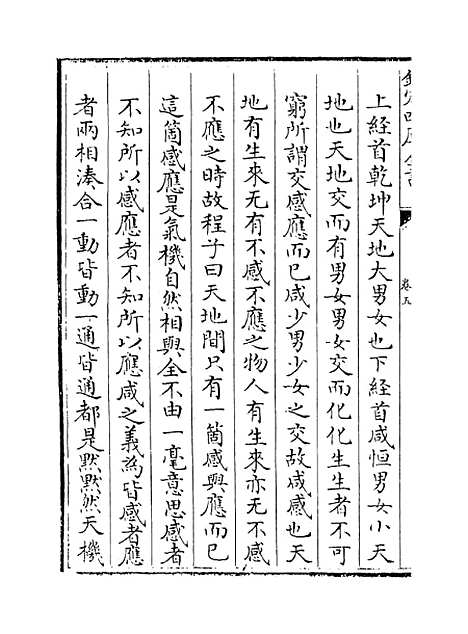 欽定四庫全書
卷五
上經首乾坤天地大男女也下經首咸恒男女小天
地也天地交而有男女男女交而化化生生者不可
窮所謂交感應而已咸少男少女之交故咸感也天
地有生來无有不感不應之物人有生來亦无不感
不應之時故程子曰天地間只有一箇感與應而已
這箇感應是氣機自然相與全不由一毫意思感者
不知所以感應者不知所以應咸之義為皆感者應
者兩相湊合一動皆動一通皆通都是黙黙然天機